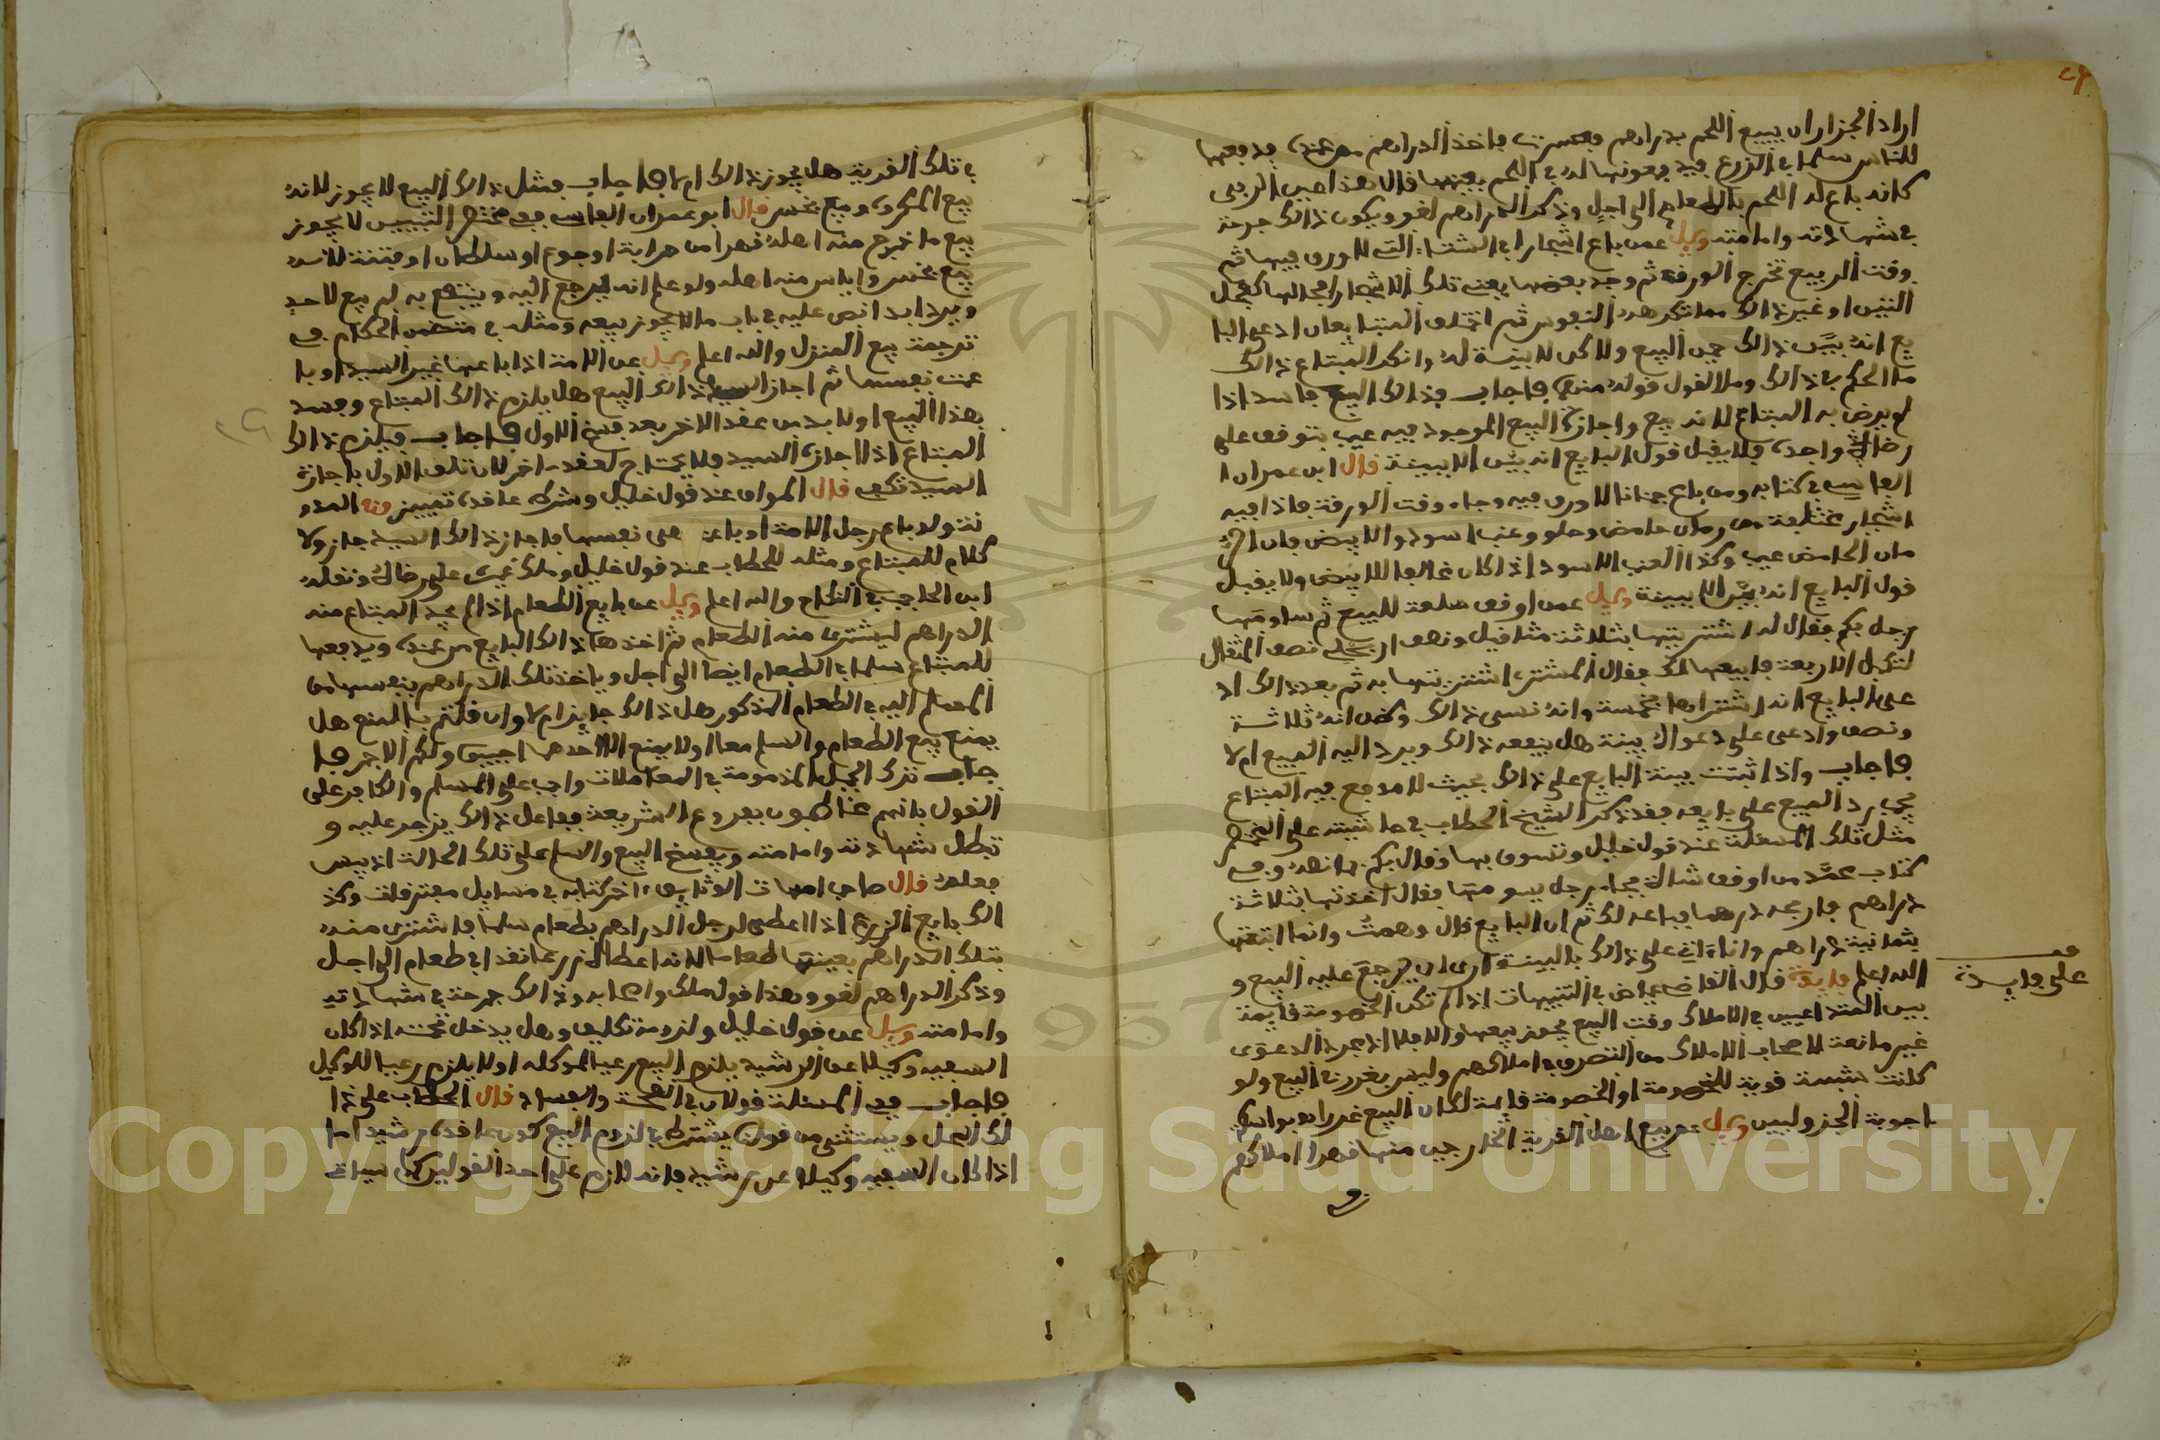 ٤٩
اراد الجزار ان يبيع اللحم بدراهم فعسرت فاخذ الدراهم من عنده فدفعها
للناس سلما في الزرع فيدفعونها له في اللحم بعينها فال هذا عين الربى
كانه باع له اللحم بالطعام الى اجل وذكر الدراهم لغو ويكون ذالك جرحة
في شهادته وامامته وسيل عمن باع اشجارا في الشتاء التي لا ورق فيها ثم
وقت الربيع تخرج الورقة ثم وجد بعضها يعني تلك الاشجار
التين او غير ذالك مما تكرهه النفوس ثم اختلف المتبايعان ادعى البا
يع انه بين ذالك حين البيع ولاكن لا بينة له وانكر المبتاع ذالك
ما الحكم في ذالك وملا لقول قوله منهما فاجاب فذالك البيع فاسد اذا
لم يرض به المبتاع لانه بيع واجازة البيع الموجود فيه عيب يتوقف على
رضا واجده فلا يقبل قول البايع انه بين الا ببينة فال ابن عمران ا
الفاسي في كتابه ومن باع جنانا لا ورق فيه وجاء وقت الورقة فاذا فيه
اشجار مختلفة من رمان حامض وحلو وعنب اسود والابيض فان الر
مان الحامض عيب وكذا العنب الاسود اذا كان غالبا للابيض ولا يقبل
قول البايع انه بين الا ببينة وسيل عمن اوقف سلعة للبيع ثم ساومها
رجل بكم فقال له اشتريتها بثلاثة مثاقيل ونصف نصف المثقال
لتكمل الاربعة فابيعها لك فقال المشتري اشتريتها به ثم بعد ذالك اد
عى البايع انه اشتراها بخمسة وانه نسى ذالك وظن انه ثلاثة
ونصف وادعى على دعواه بينة هل ينفعه ذالك ويرد اليه المبيع ام لا
فاجاب واذا ثبتت بينة البايع على ذالك بحيث لا مدفع فيه المبتاع
فيجب رد المبيع على بايعه فقد ذكر الشيخ الحطاب في حاشيته على المختصر
مثل تلك المسئلة عند قول خليل وتسوق بها وقال بكم ما نصه وفي
كتاب محمد من اوقف شاة فجاء رجل يسومها فقال اخذتها بثلاثة
دراهم فاربحه درهما فباعه لك ثم ان البايع قال وهمت وانما ابتعتها
بثمانية دراهم واتى على ذالك بالبينة ارى ان يرجع عليه البيع و
الله اعلم فايدة قال القاضي عياض في التنبيهات اذا لم تكن الخصومة قايمة
قف
على فايدة
بين المتداعيين في الاملاك وقت البيع يجوز بيعها والا فلا اذ مجرد الدعوى
غير مانعة لاصحاب الاملاك من التصرف في املاكهم وليس بغرر في البيع ولو
كانت بشبهة قوية للخصومة او الخصومة قايمة لكان البيع غررا
اجوبة الجزوليين وسيل عن بيع اهل القرية الخارجين منها قهرا املاكهم
في
في تلك القرية هل يجوز ذالك ام لا فاجاب فمثل ذالك البيع لا يجوز لانه
بيع المكره وبيع بخس قال ابو عمران الفاسي في مختصر التبيين لا يجوز
بيع ما خرج منه اهله قهرا من حرابة او جوع او سلطان او فتنة لانه
بيع بخس واياس منه اهله ولو علم انه يرجع اليه وينتفع به لم يبع لاحد
ويرد ابدا نص عليه في باب ما لا يجوز بيعه ومثله في منتخب الحكام في
ترجمة بيع المنزل والله اعلم وسيل عن الامة اذا باعها غير السيد او با
عت نفسها ثم اجاز السيد ذالك البيع هل يلزم ذالك المبتاع وفسد
بهذا البيع او لا بد من عقد الاخر بعد فسخ الاول فاجاب فيلزم ذالك
المبتاع اذا اجازه السيد ولا يحتاج لعقد اخر لان تلك الاول باجازة
السيد تكفي قال المواق عند قول خليل وشرط عاقده تمييز منه المدو
نة ولو باع رجل الامة او باعت هي نفسها فاجاز ذالك السيد جاز ولا
كلام للمبتاع ومثله للحطاب عند قول خليل وملك غيره على رضاه ونقله
ابن الحاجب في النكاح والله اعلم وسيل عن بايع الطعام اذا لم يجد المبتاع منه
الدراهم ليشتري منه الطعام ثم اخذها ذالك البايع من عنده ويدفعها
للمبتاع سلما في الطعام ايضا الى اجل وياخذ تلك الدراهم بنفسها من
المسلم اليه في الطعام المذكور هل ذالك جايز ام لا وان قلتم بالمنع هل
يمنع بيع الطعام والسلم معا او لا يمنع الا احدهما اجيبوا ولكم الاجر فا
جاب ترك الحيل المذمومة في المعاملات واجب على المسلم والكافر على
القول بانهم مخاطبون بفروع الشريعة ففاعل ذالك يزجر عليه و
تبطل شهادته وامامته ويفسخ البيع والسلم على تلك الحالة اذ بيس
فعله قال صاحب امهات الوثايق اخر كتابه في مسايل مفترقات وكذ
الك بايع الزرع اذا اعطى لرجل الدراهم بطعام سلما فاشترى منه
بتلك الدراهم بعينها طعاما لانه اعطاه زرعا نقدا في طعام الى اجل
وذكر الدراهم لغو وهذا قول مالك واصحابه وذالك جرحة في شهادته
وامامته وسيل عن قول خليل ولزومه تكليف وهل يدخل تحته اذا كان
السفيه وكيلا عن الرشيد يلزم البيع رعيا لموكله او لا يلزم رعيا للوكيل
فاجاب ففي المسئلة قولان في الصحة والفساد قال الحطاب على ذا
لك المحل ويستثنى من قولنا يشترط في لزوم البيع كون عاقده رشيدا ما
اذا كان السفيه وكيلا عن رشيد فانه لازم على احد القولين كما سياتي
Copyright © King Saud University
1957